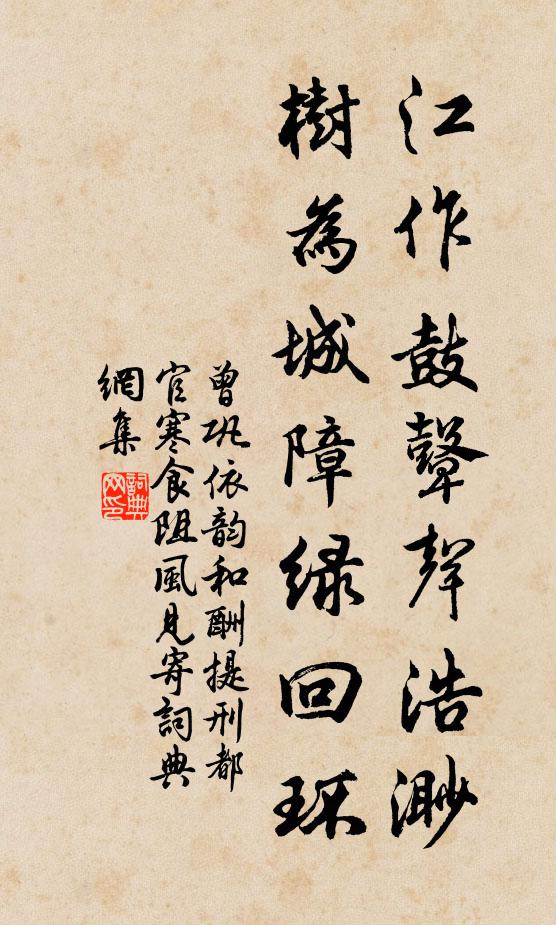 江作鼓鼙聲浩渺
樹為城障綠回环
曾巩依韵和酬提刑都
官寒食阻風見寄詞典
網集
詞典
网印